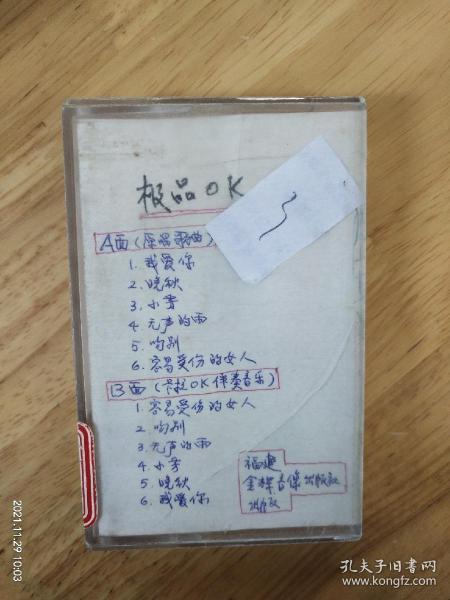 极品OK
A面(原唱歌曲)
1. 我爱你
2. 晓秋
3. 小芳
4. 无声的雨
5. 吻别
6. 容易受伤的女人
B面(卡拉OK伴奏音乐)
1. 容易受伤的女人
2. 吻别
3. 无声的雨
4. 小芳
5. 晓秋
6. 我爱你
福建
音像出版社
出版
2021.11.29 10:03
孔夫子旧书网
www.kongfz.com